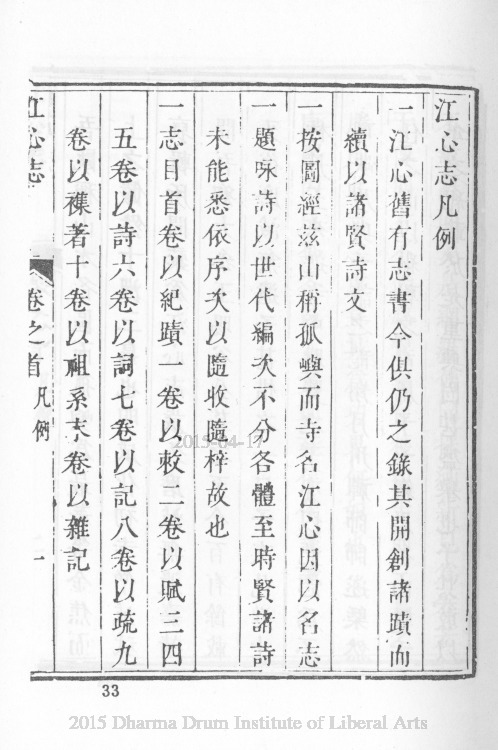 江心志凡例
一江心舊有志書今俱仍之錄其開創諸蹟而
續以諸賢詩文
一按圖經茲山稱孤嶼而寺名江心因以名志
一題咏詩以世代編次不分各體至時賢諸詩
未能悉依序次以隨收隨梓故也
一志目首卷以紀蹟一卷以敕二卷以賦三四
五卷以詩六卷以詞七卷以記八卷以疏九
卷以襍著十卷以祖系末卷以雜記
江心志
卷之首 凡例
一
2015-04-17
33
2015 Dharma Drum Institute of Liberal Arts